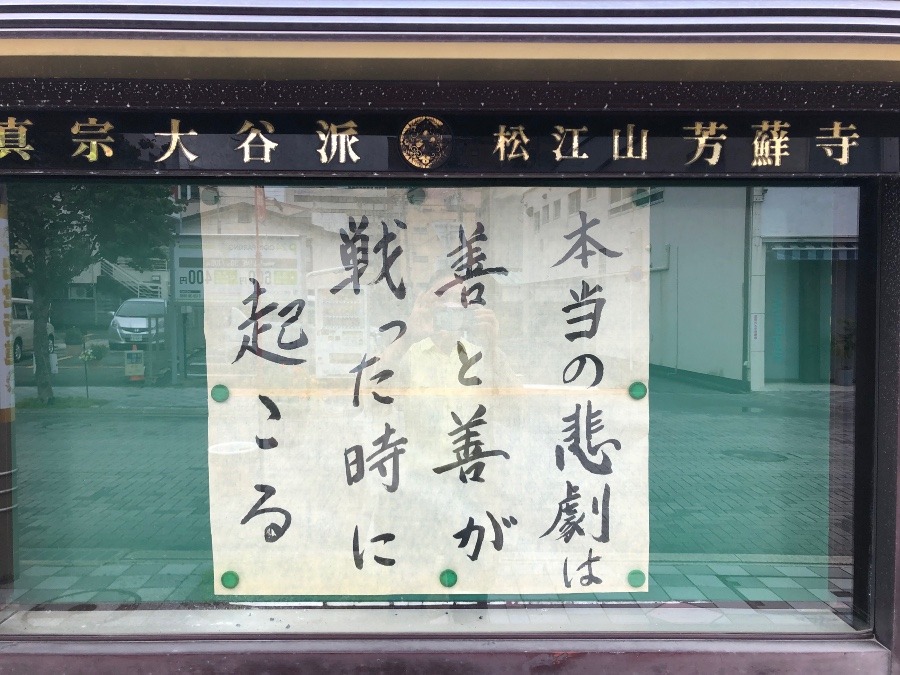 真宗大谷派 松江山 芳蘇寺
本当の悲劇は
善と善が
戦った時に
起こる